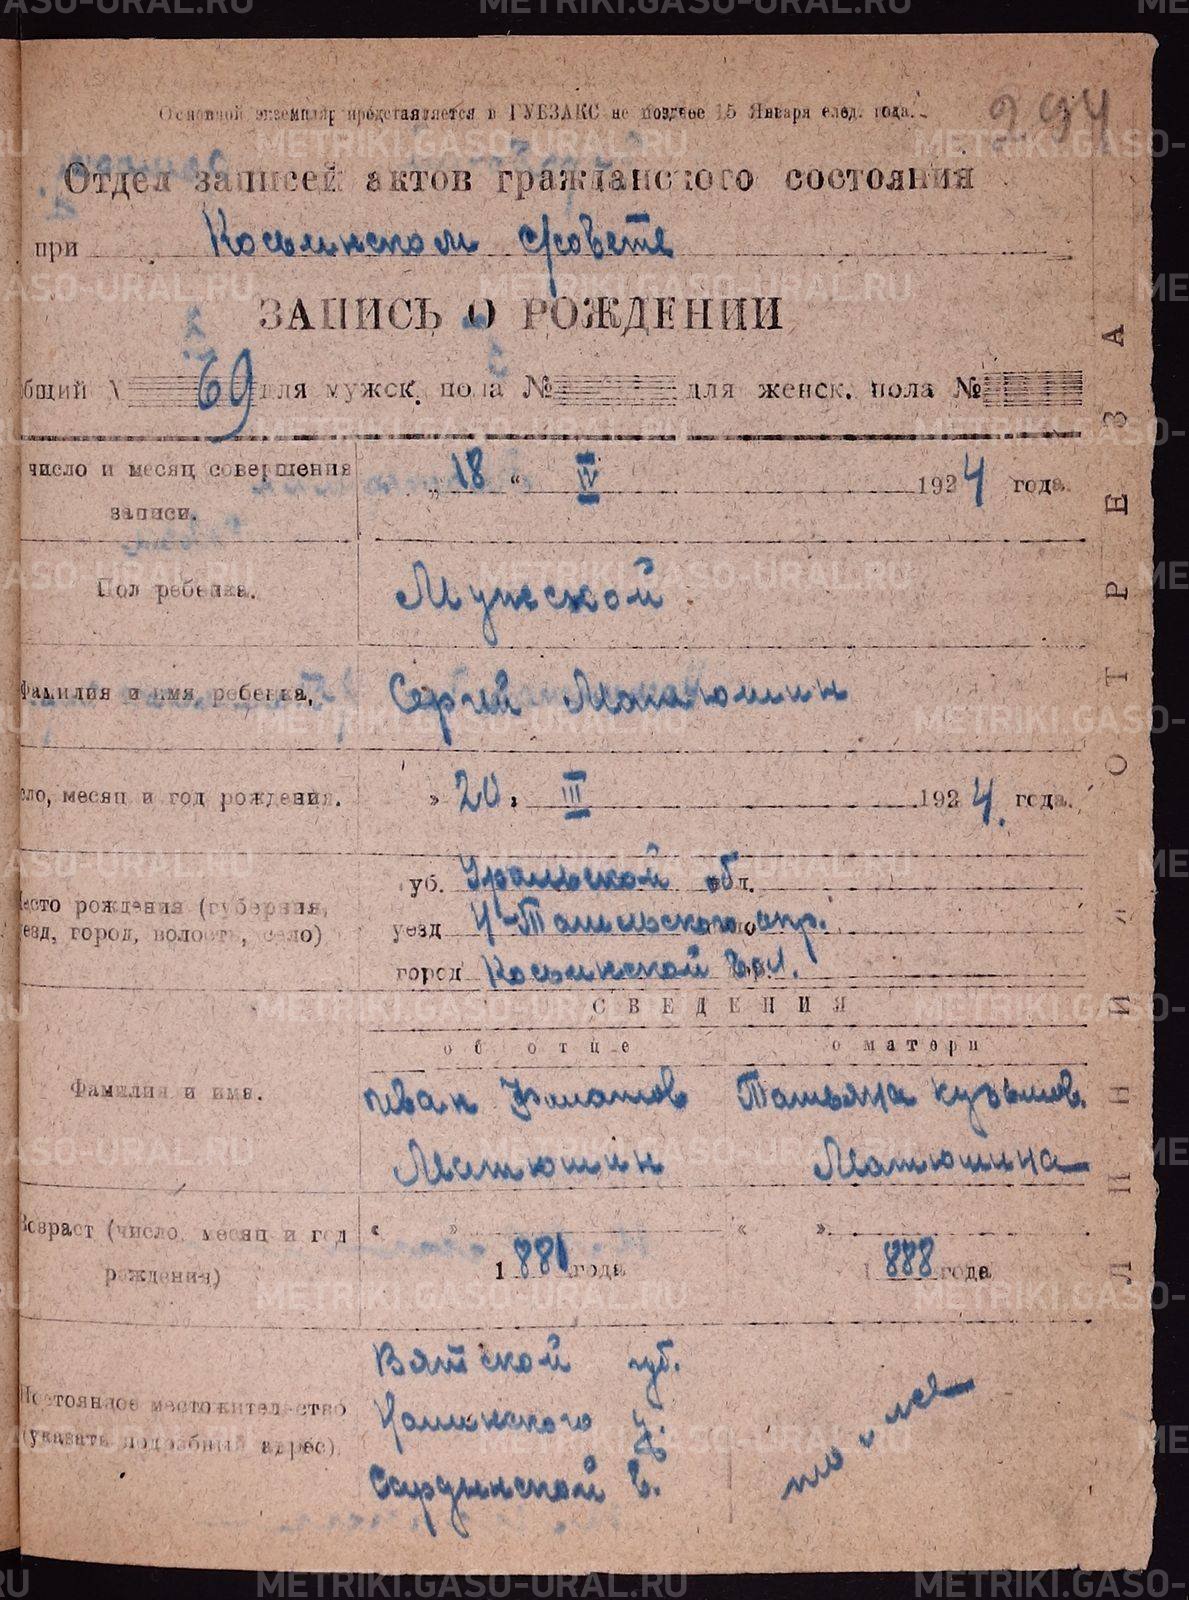 Основной экземпляр представляется в ГУБЗАКС не позднее 15 Января след. года.
294
Отдел записей актов гражданского состояния
при Косьинском с/совете
ЗАПИСЬ О РОЖДЕНИИ
бщий № 69 для мужск. пола № для женск. пола №
число и месяц совершения записи. „ 18 “ IV 1924 года
Пол ребенка. Мужской
Фамилия и имя ребенка, Сергей Матюшин
сло, месяц и год рождения. » 20, III 1924. года.
есто рождения (губерния, уезд, город, волость, село)
губ. Уральской обл.
уезд Н-Тагильского окр.
город Косьинской вол.
СВЕДЕНИЯ
об отце о матери
Фамилия и имя. Иван Филатов Татьяна Кузьмов.
Матюшин Матюшина
Возраст (число, месяц и год рождения) « » « »
1881 года 1888 года
Постоянное местожительство (указать подробный адрес).
Вятской губ.
у.
в.
то и
ЛИНИЯ ОТРЕЗА
METRIKI.GASO-URAL.RU